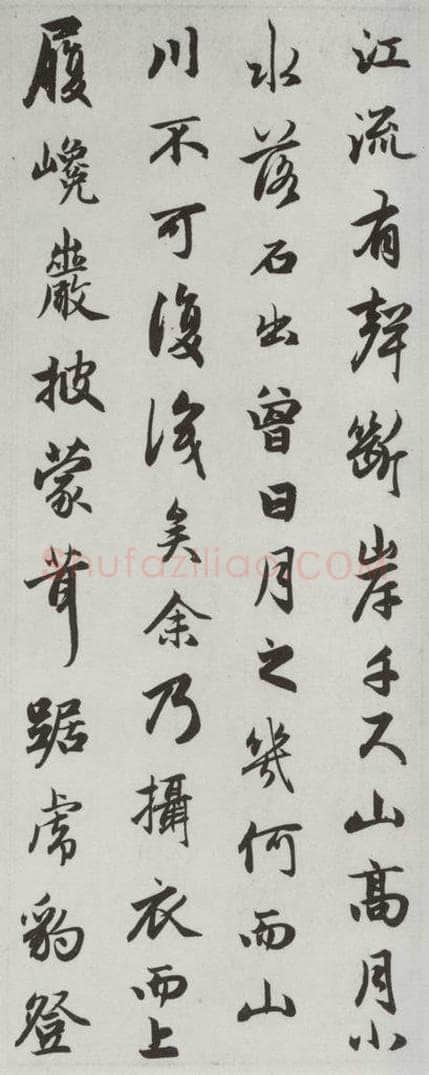 江流有聲斷岸千尺山高月小
水落石出曾日月之幾何而山
川不可復識矣余乃攝衣而上
履巉巖披蒙茸踞虎豹登
Shufaziliao.COM